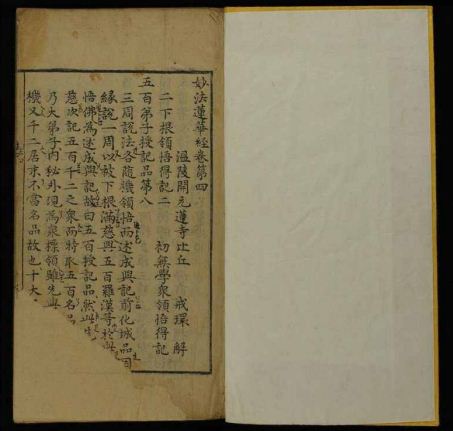 妙法蓮華經卷第四
溫陵開元蓮寺比丘 戒環 解
二下根領悟得記二 初無學衆領悟得記
五百弟子授記品第八
三周說法各隨機領悟而述成與記前化城品因
緣說一周以被下根滿慈與五百羅漢等於此
悟佛為述成與記故曰五百授記品然此
慈次記五百千二之衆而特取五百名品
乃大弟子內秘外現為衆標領雖先
機又千二居末不當名品故也十大